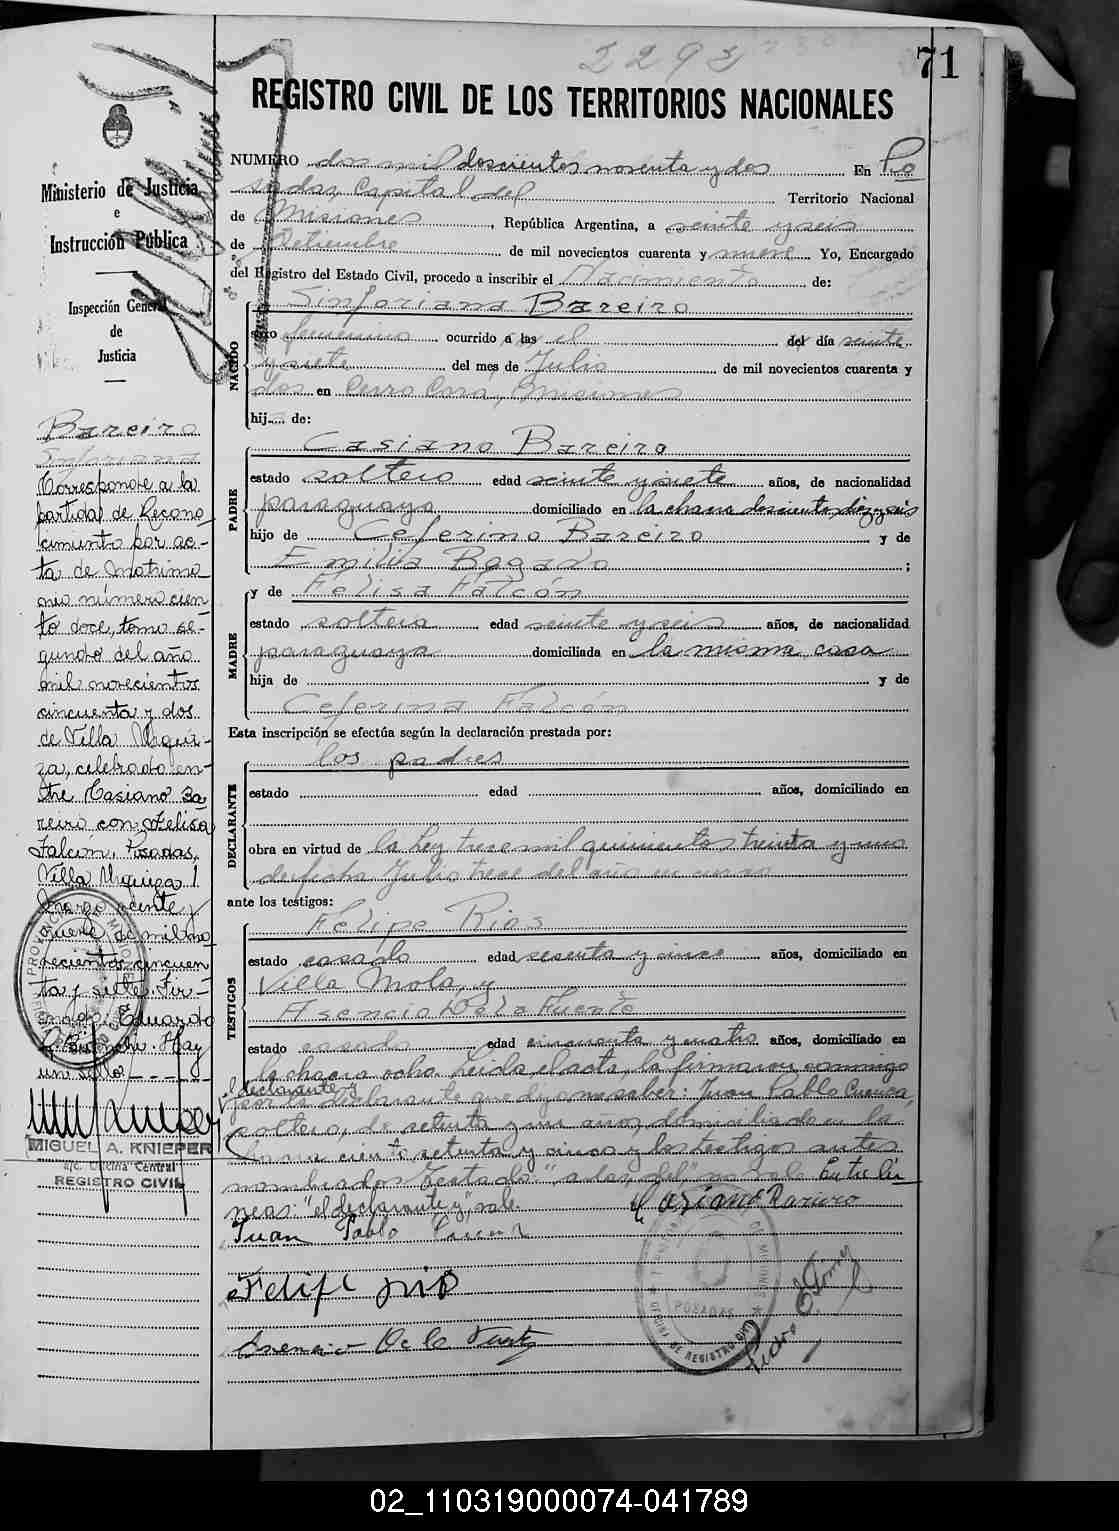 2292
71
REGISTRO CIVIL DE LOS TERRITORIOS NACIONALES
Ministerio de Justicia
e
Instrucción Pública
Inspección General
de
Justicia
NUMERO dos mil doscientos noventa y dos En Po
sadas, Capital del Territorio Nacional
de Misiones, República Argentina, a veinte y seis
de Setiembre de mil novecientos cuarenta y nueve Yo, Encargado
del Registro del Estado Civil, procedo a inscribir el Nacimiento de:
NACIDO
Sinforiana Bareiro
sexo femenino ocurrido a las el del día veinte
y siete del mes de Julio de mil novecientos cuarenta y
dos en Cerro Corá, Misiones
hij.... de:
PADRE
Casiano Bareiro
estado soltero edad veinte y siete años, de nacionalidad
paraguaya domiciliado en la chacra doscientos diez y seis
hijo de Ceferino Bareiro y de
Emilia Bogado ;
MADRE
y de Felisa Falcón
estado soltera edad veinte y seis años, de nacionalidad
paraguaya domiciliada en la misma casa
hija de y de
Ceferina Falcón
Esta inscripción se efectúa según la declaración prestada por:
DECLARANTE
los padres
estado edad años, domiciliado en
obra en virtud de la Ley trece mil quinientos treinta y uno
de fecha Julio trece del año en curso
ante los testigos:
TESTIGOS
Felipe Rios
estado casado edad sesenta y cinco años, domiciliado en
Villa Mola, y
Asencio De la Fuente
estado casado edad cincuenta y cuatro años, domiciliado en
la chacra ocho. Leida el acta, la firmaron conmigo
el declarante y
por la declarante que dijo no saber: Juan Pablo Cuenca,
soltero, de setenta y un años, domiciliado en la
chacra ciento setenta y cinco y los testigos antes
nombrados. Testado: "a las, del" no vale. Entre lí
neas: "el declarante y", vale.
Casiano Bareiro
Juan Pablo Cuenca
Felipe Rios
Asencio De la Fuente
POSADAS
OFICINA DE REGISTRO CIVIL
Bareiro
Sinforiana
Corresponde a la
partida de Recono
cimiento por ac-
ta de Matrimo
nio número cien
to doce, tomo se-
gundo del año
mil novecientos
cincuenta y dos
de Villa Urqui-
za, celebrado en-
tre Casiano Ba
reiro con Felisa
Falcon. Posadas,
Villa Urquiza
Marzo veinte y
nueve de mil no
vecientos cincuen
ta y siete. Fir-
mado: Eduardo
Hay
un sello
MIGUEL A. KNIEPER
Oficina Central
REGISTRO CIVIL
02_110319000074-041789